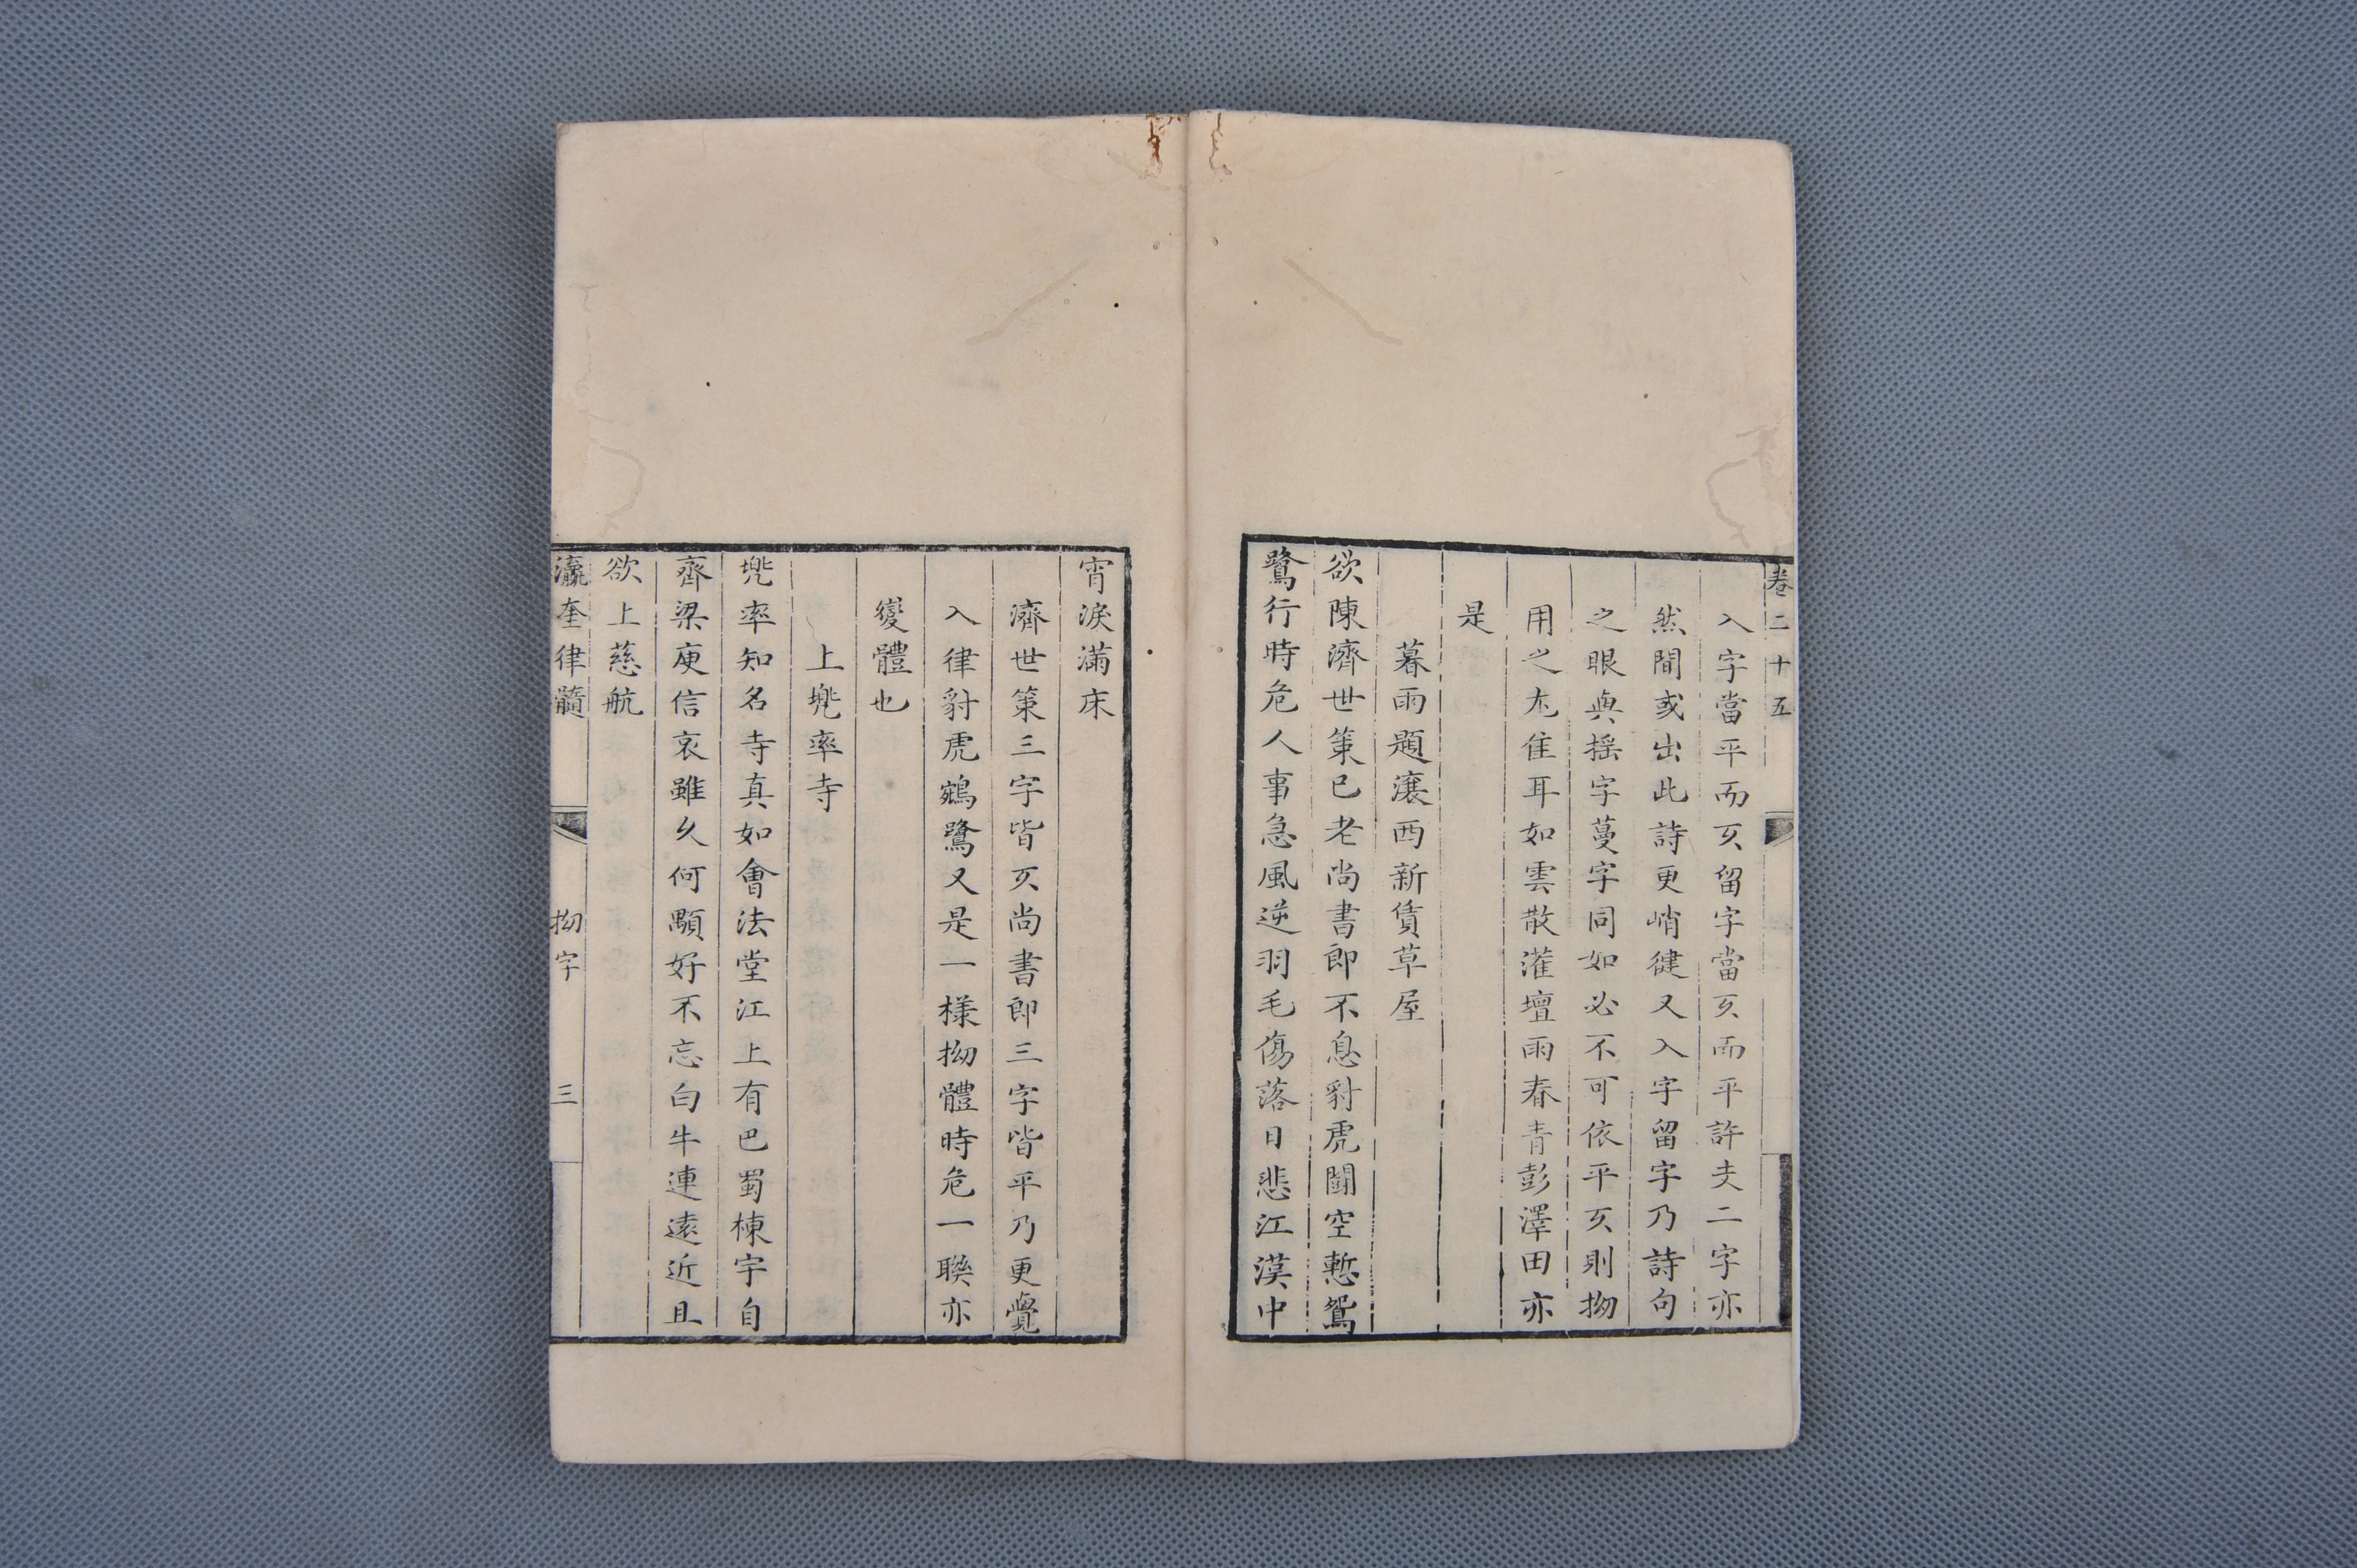 卷二十五
入字當平而仄留字當仄而平許夫二字亦
然間或出此詩更峭健又入字留字乃詩句
之眼與搖字蔓字同如必不可依平仄則拗
用之尤佳耳如雲散灌壇雨春青彭澤田亦
是
暮雨題瀼西新賃草屋
欲陳濟世策已老尚書郎不息豺虎鬪空慙鴛
鷺行時危人事急風逆羽毛傷落日悲江漢中
宵淚滿床
濟世策三字皆仄尚書郎三字皆平乃更覺
入律豺虎鵷鷺又是一樣拗體時危一聯亦
變體也
上兠率寺
兠率知名寺真如會法堂江上有巴蜀棟宇自
齊梁庾信哀雖久何顒好不忘白牛連遠近且
欲上慈航
瀛奎律髓 拗字 三